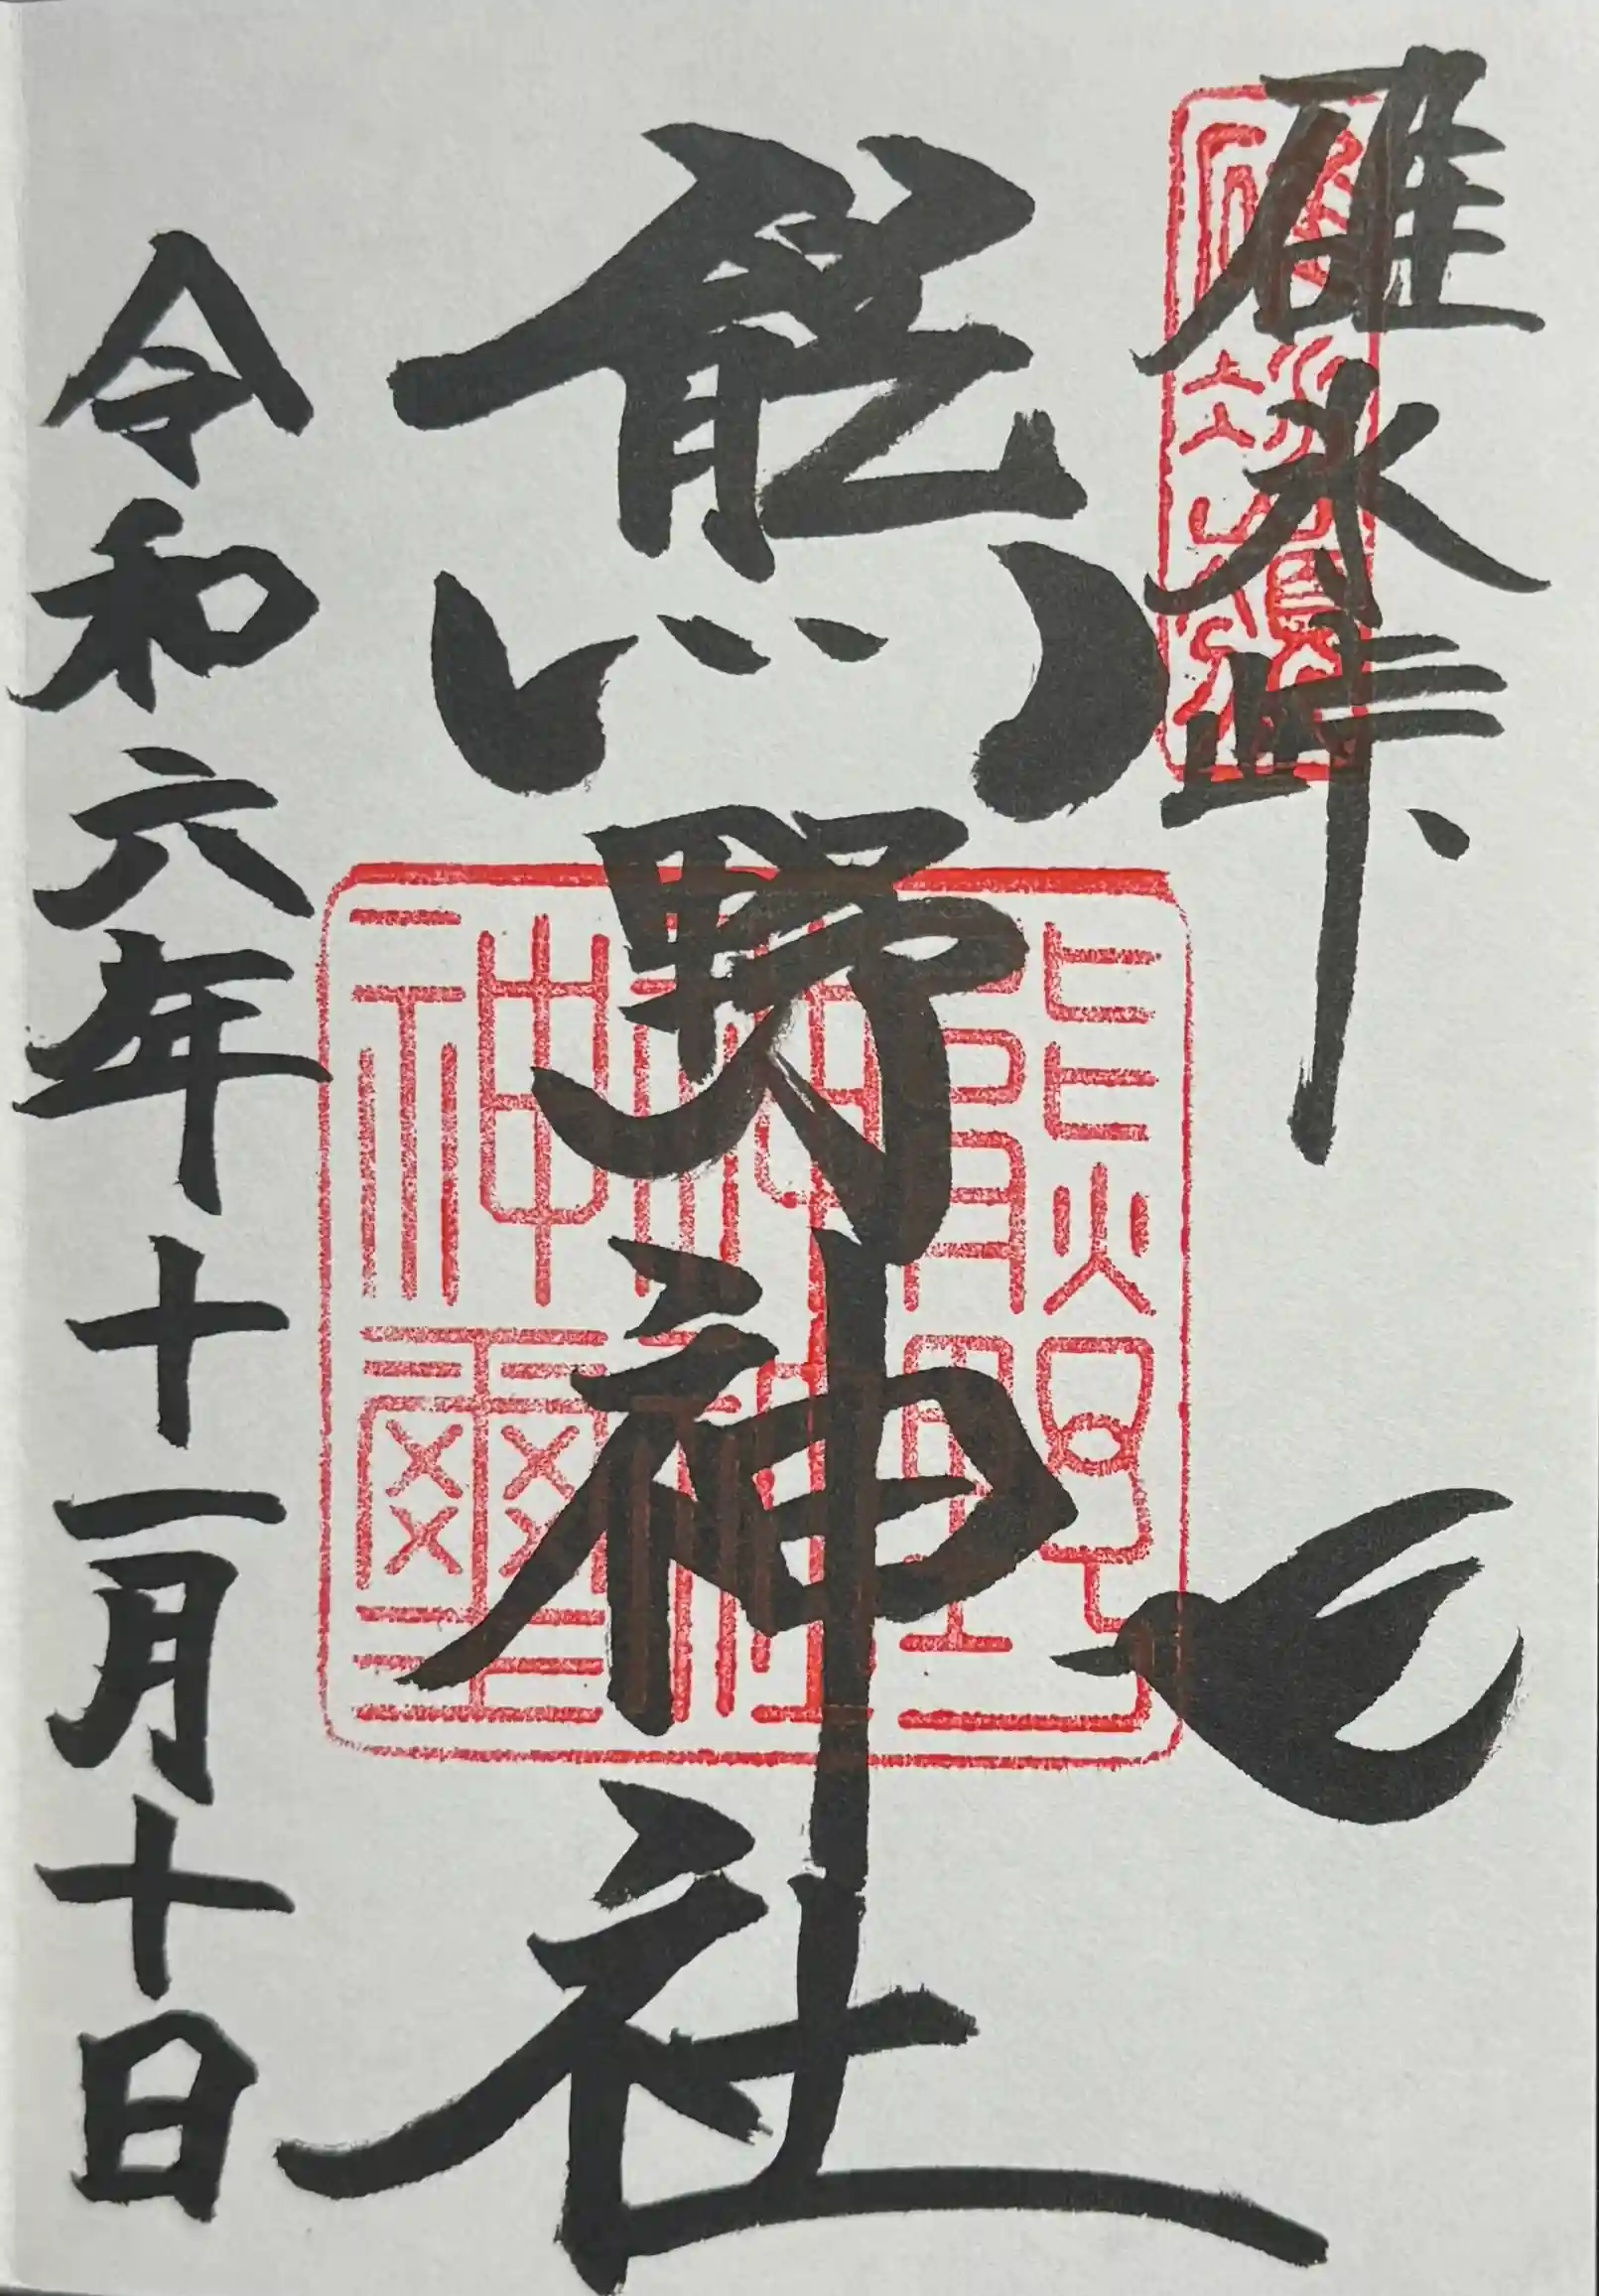 碓氷峠
熊野神社
熊野神社神璽
令和六年十一月十日